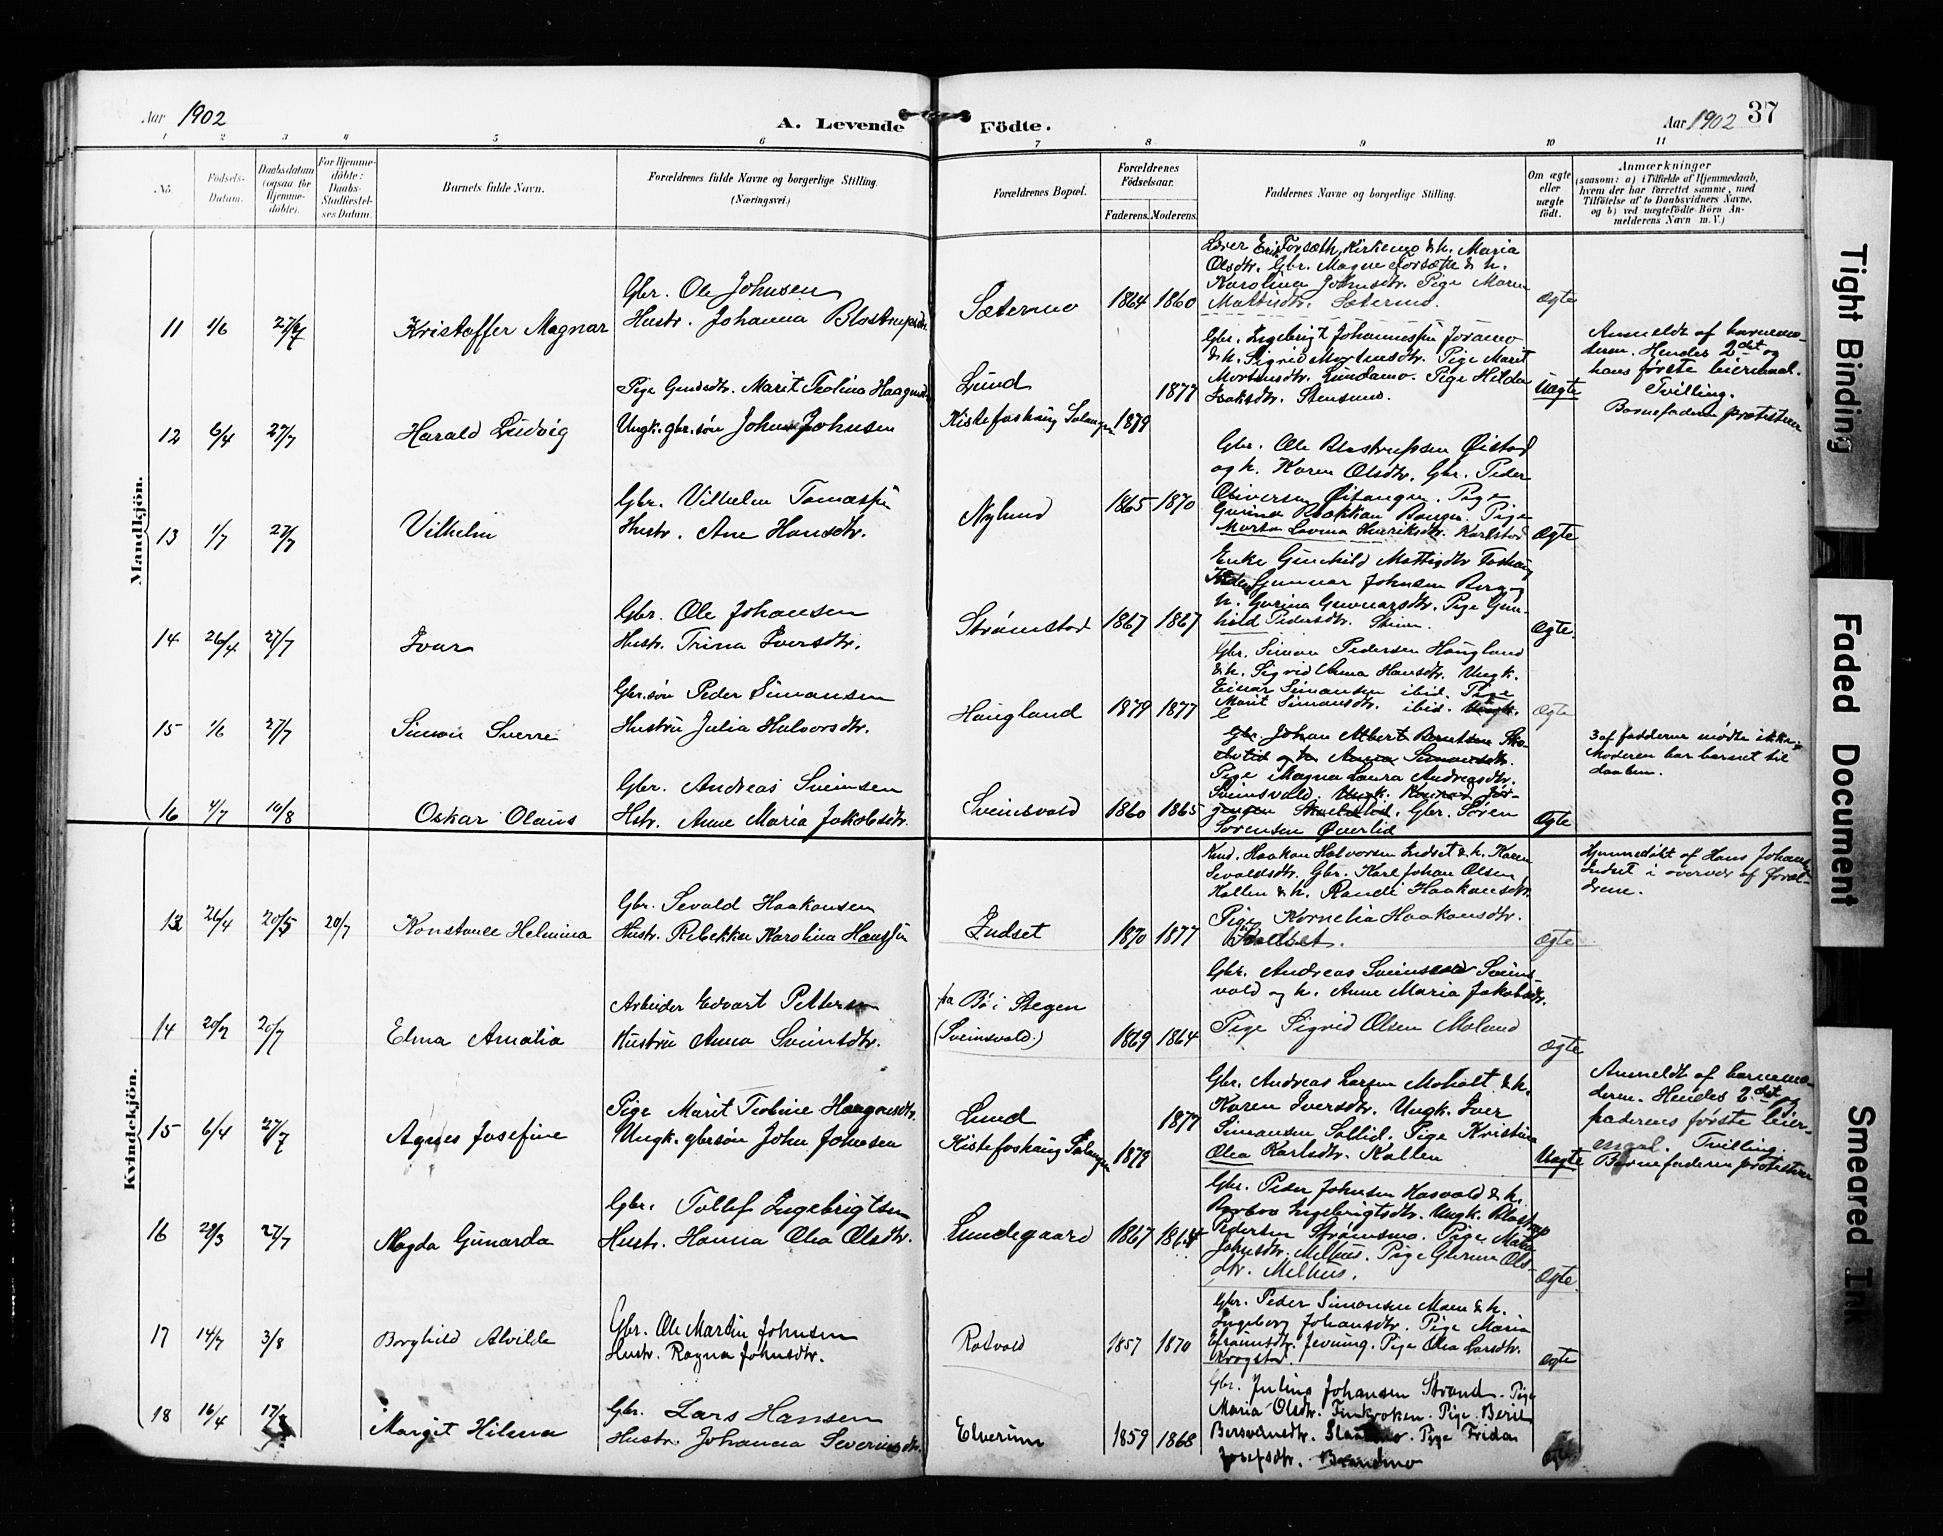 Aar 1902
A. Levende Födte.
Aar 1902 37
1 2 3 4 5 6 7 8 9 10 11
No.
Födsels-Datum.
Daabsdatum (ogsaa for Hjemme-döbte).
For Hjemme-döbte: Daabs-Stadfæstel-ses Datum.
Barnets fulde Navn.
Forældrenes fulde Navne og borgerlige Stilling. (Næringsvei.)
Forældrenes Bopæl.
Forældrenes Födselsaar.
Faderens. Moderens.
Faddernes Navne og borgerlige Stilling.
Om ægte eller uægte født.
Anmærkninger
(saasom: a) i Tilfælde af Hjemmedaab,
hvem der har forrettet samme, med
Tilföielse af to Daabsvidners Navne,
og b) ved uægtefödte Börn An-
melderens Navn m. V.)
Mandkjön.
Lærer Erik Forsæth, Kirkemo & h. Maria
Olsdtr. Gbr. Magne Forsæth & h.
Karolina Johnsdtr. Pige Maren
Mattisdtr. Sætermo.
Gbr. Ole Johnsen
11 1/6 27/7 Kristoffer Magnar Hustr. Johanna Sætermo 1864 1860 Ægte
Gbr. Ingebrigt Johannessen
& h. Sigrid Mortensdtr. Pige Marit
Mortensdtr. Lundamo. Pige Hilda
Isaksdtr. Stensmo.
Anmeldt af barnemo-
deren. Hendes 2det og
hans første leiermaal.
Tvilling.
Barnefaderen protesterer
Pige Marit Lund 1877 Uægte
12 6/4 27/7 Harald Ludvig Ungk. gbr. søn John Johnsen Kistefoshaug Salangen 1879
Gbr. Ole Øistad
og h. Karen Olsdtr. Gbr. Peder
Pige
Pige
Henriksdtr. Karlstad
Gbr. Vilhelm Tomassen
13 1/7 27/7 Vilhelm Hustr. Ane Hansdtr. Nylund 1865 1870 Ægte
Enke Gunhild Mattisdtr Foshaug
Gunnar Johnsen Berg og
h. Gurina Gunnarsdtr. Pige Gun-
hild Pedersdtr.
Gbr. Ole Johansen
14 26/4 27/7 Ivar Hustr. Trina Iversdtr. Strømstad 1867 1867 Ægte.
Gbr. Simon Pedersen Haugland
& h. Sigrid Anna Hansdtr. Ungk.
Einar Simonsen ibid. Pige
Marit Simonsdtr. ibid. Ungk.
Gbr. søn Peder Simonsen
15 1/6 27/7 Simon Sverre Hustru Julia Halvorsdtr. Haugland 1879 1877 Ægte
Gbr. Johan Albert Berntsen
og h. Anna Simonsdtr.
Pige Magna Laura Andreasdtr.
Sveinsvold. Ungk. Konrad Jør-
gensen Gbr. Søren
Sørensen Øverlid
3 af fadderne mødte ikke.
Moderen bar barnet til
daaben.
Gbr. Andreas Sveinsen
16 4/7 10/8 Oskar Olaus Hstr. Anne Maria Jakobsdtr. Sveinsvold 1860 1865 Ægte
Kvindekjön.
Haakon Halvorsen Indset & h. Karen
Sevaldsdtr. Gbr. Karl Johan Olsen
Kallen & h. Randi Haakonsdtr.
Pige Kornelia Haakonsdtr.
Hjemmedøbt af Hans Johansen
Indset i overvær af foræl-
drene.
Gbr. Sevald Haakonsen
13 26/4 20/5 20/7 Konstanse Helmina Hustr. Rebekka Karolina Indset 1870 1877 Ægte
Gbr. Andreas Sveinsen Sveins-
vold og h. Anne Maria Jakobsdtr.
Pige Sigrid Olsen Moland
Arbeider Edvart Pettersen
14 20/2 20/7 Elma Amalia Hustru Anna Sveinsdtr. fra Bø i Stegen (Sveinsvold.) 1869 1864 Ægte
Gbr. Andreas Larsen Moholt & h.
Karen Iversdtr. Ungk. Iver
Simonsen Sollid. Pige Kristina
Olea Karlsdtr. Kallen
Anmeldt af barnemo-
deren. Hendes 2det og
faderens første leier-
maal. Tvilling.
Barnefaderen protesterer
Pige Marit Lund 1877
15 6/4 27/7 Agnes Josefine Ungk. gbrsøn John Johnsen Kistefoshaug Salangen 1879 Uægte
Gbr. Peder Johnsen Hasvold & h.
Barbra Ingebrigtsdtr. Ungk.
Pedersen Strømsmo. Pige
Johnsdtr. Melhus. Pige Ols-
dtr. Melhus.
Gbr. Tollef Ingebrigtsen
16 28/3 27/7 Magda Gunarda Hustr. Hanna Olea Olsdtr. Lundegaard 1867 1864 Ægte
Gbr. Peder Simonsen Moen & h.
Ingeborg Johansdtr. Pige Maria
Pige Olea Larsdtr.
Krogstad.
Gbr. Ole Martin Johnsen
17 14/7 3/8 Borghild Alvilde Hustr. Ragna Johnsdtr. Rotvold 1857 1870 Ægte
Gbr. Julius Johansen Strand. Pige
Maria Olsdtr. Finkroken. Pige Berit
Bersvendsdtr. Pige Frida
Josefsdtr. Brandmo
Gbr. Lars Hansen
18 16/4 17/8 Margit Hilma Hustr. Johanna Severinsdtr. Elverum 1859 1868 Ægte
Tight Binding
Faded Document
Smeared Ink